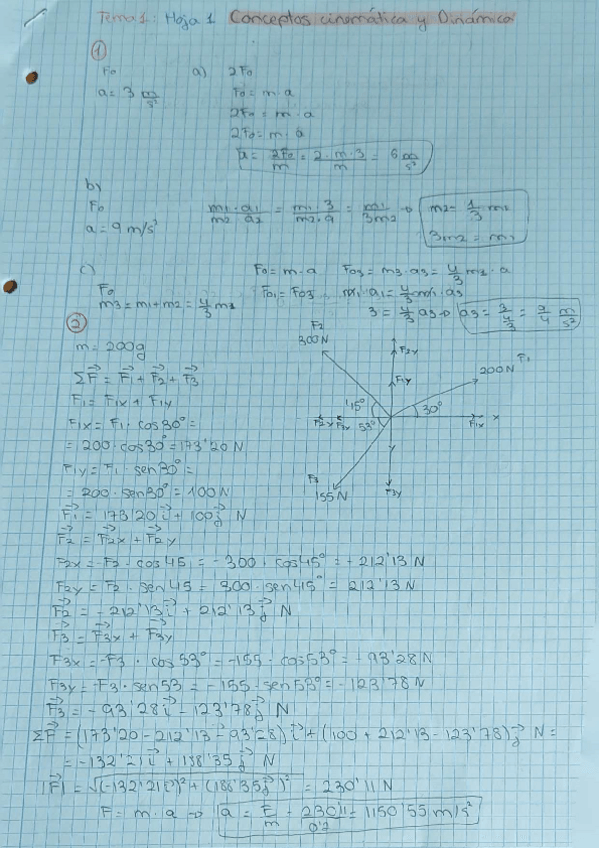 Tema 1: Hoja 1 Conceptos cinemática y Dinámica
1
F₀
a = 3 m/s²
a) 2F₀
F₀ = m · a
2F₀ = m · a
2F₀ = m · a
a = 2F₀/m = 2 · m · 3/m = 6 m/s²
b)
F₀
a = 9 m/s²
m₁ · a₁/m₂ a₂ = m₁ · 3/m₂ · 9 = m₁/3m₂ → m₂ = 1/3 m₁
3m₂ = m₁
c)
F₀
m₃ = m₁ + m₂ = 4/3 m₁
F₀ = m · a F₀₃ = m₃ · a₃ = 4/3 m₁ · a
F₀₁ = F₀₃ m₁ · a₁ = 4/3 m₁ · a₃
3 = 4/3 a₃ → a₃ = 3/(4/3) = 9/4 m/s²
2
m = 200g
ΣF⃗ = F⃗₁ + F⃗₂ + F⃗₃
F₁ = F₁x + F₁y
F₁x = F₁ · cos30° =
= 200 · cos30° = 173'20 N
F₁y = F₁ · sen30° =
= 200 · sen30° = 100 N
F⃗₁ = 173'20 i⃗ + 100 j⃗ N
F₂
300N
F₂y
F₁y
200N F₁
45°
30°
F₂x F₃x 53°
F₁x x
y
F₃
155N
F₃y
F⃗₂ = F⃗₂x + F⃗₂y
F₂x = -F₂ · cos45 = -300 · cos45° = -212'13 N
F₂y = F₂ · sen45 = 300 · sen45° = 212'13 N
F⃗₂ = -212'13 i⃗ + 212'13 j⃗ N
F⃗₃ = F⃗₃x + F⃗₃y
F₃x = -F₃ · cos53° = -155 · cos53° = -93'28 N
F₃y = -F₃ · sen53 = -155 · sen53° = -123'78 N
F⃗₃ = -93'28 i⃗ - 123'78 j⃗ N
ΣF⃗ = (173'20 - 212'13 - 93'28) i⃗ + (100 + 212'13 - 123'78) j⃗ N =
= -132'21 i⃗ + 188'35 j⃗ N
|F⃗| = √((-132'21 i⃗)² + (188'35 j⃗)²) = 230'11 N
F = m · a → a = F/m = 230'11/0'2 = 1150'55 m/s²